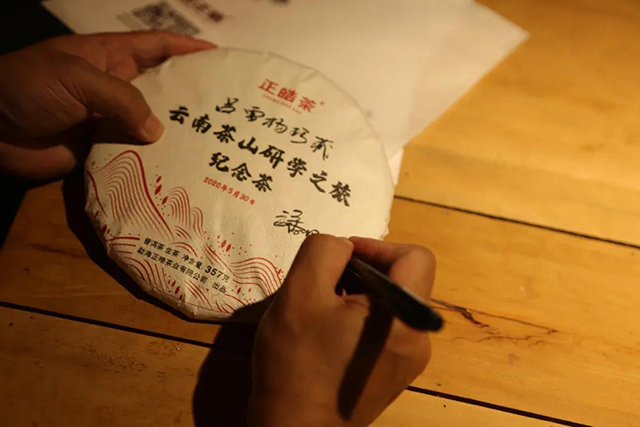 正皓茶
云南茶山研学之旅
纪念茶
2020年5月30日
普洱茶生茶 净含量 357克
勐海正皓茶业有限公司 出品